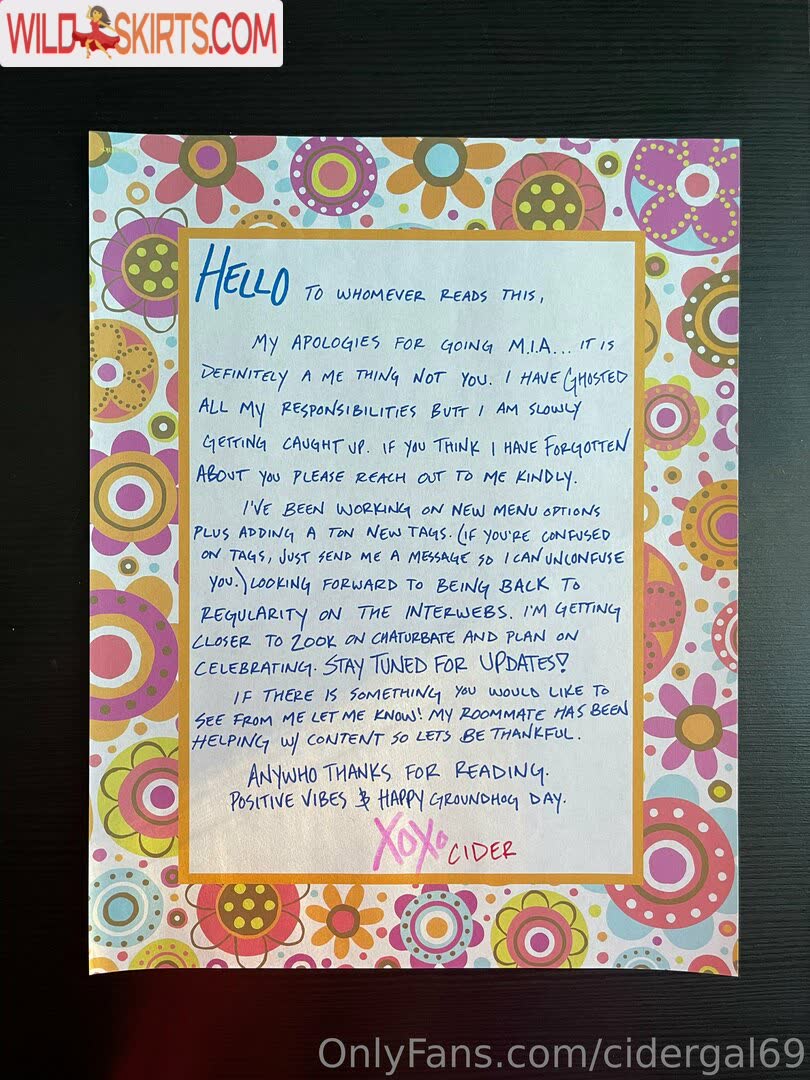 WILDSKIRTS.COM
HELLO TO WHOMEVER READS THIS,
MY APOLOGIES FOR GOING M.I.A... IT IS
DEFINITELY A ME THING NOT YOU. I HAVE GHOSTED
ALL MY RESPONSIBILITIES BUTT I AM SLOWLY
GETTING CAUGHT UP. IF YOU THINK I HAVE FORGOTTEN
ABOUT YOU PLEASE REACH OUT TO ME KINDLY.
I'VE BEEN WORKING ON NEW MENU OPTIONS
PLUS ADDING A TON NEW TAGS. (IF YOU'RE CONFUSED
ON TAGS, JUST SEND ME A MESSAGE SO I CAN UNCONFUSE
YOU.) LOOKING FORWARD TO BEING BACK TO
REGULARITY ON THE INTERWEBS. I'M GETTING
CLOSER TO 200K ON CHATURBATE AND PLAN ON
CELEBRATING. STAY TUNED FOR UPDATES!
IF THERE IS SOMETHING YOU WOULD LIKE TO
SEE FROM ME LET ME KNOW! MY ROOMMATE HAS BEEN
HELPING W/ CONTENT SO LETS BE THANKFUL.
ANYWHO THANKS FOR READING.
POSITIVE VIBES & HAPPY GROUNDHOG DAY.
XOXO CIDER
OnlyFans.com/cidergal69